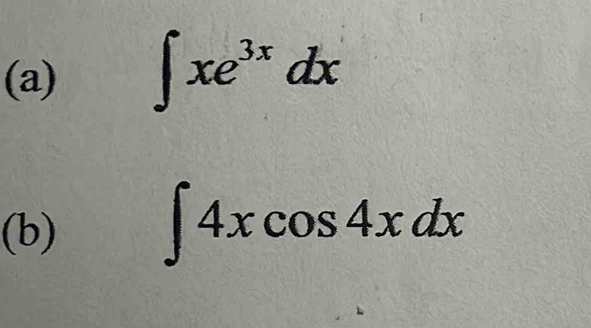 (a) ∫ xe^{3x} dx
(b) ∫ 4x cos 4x dx